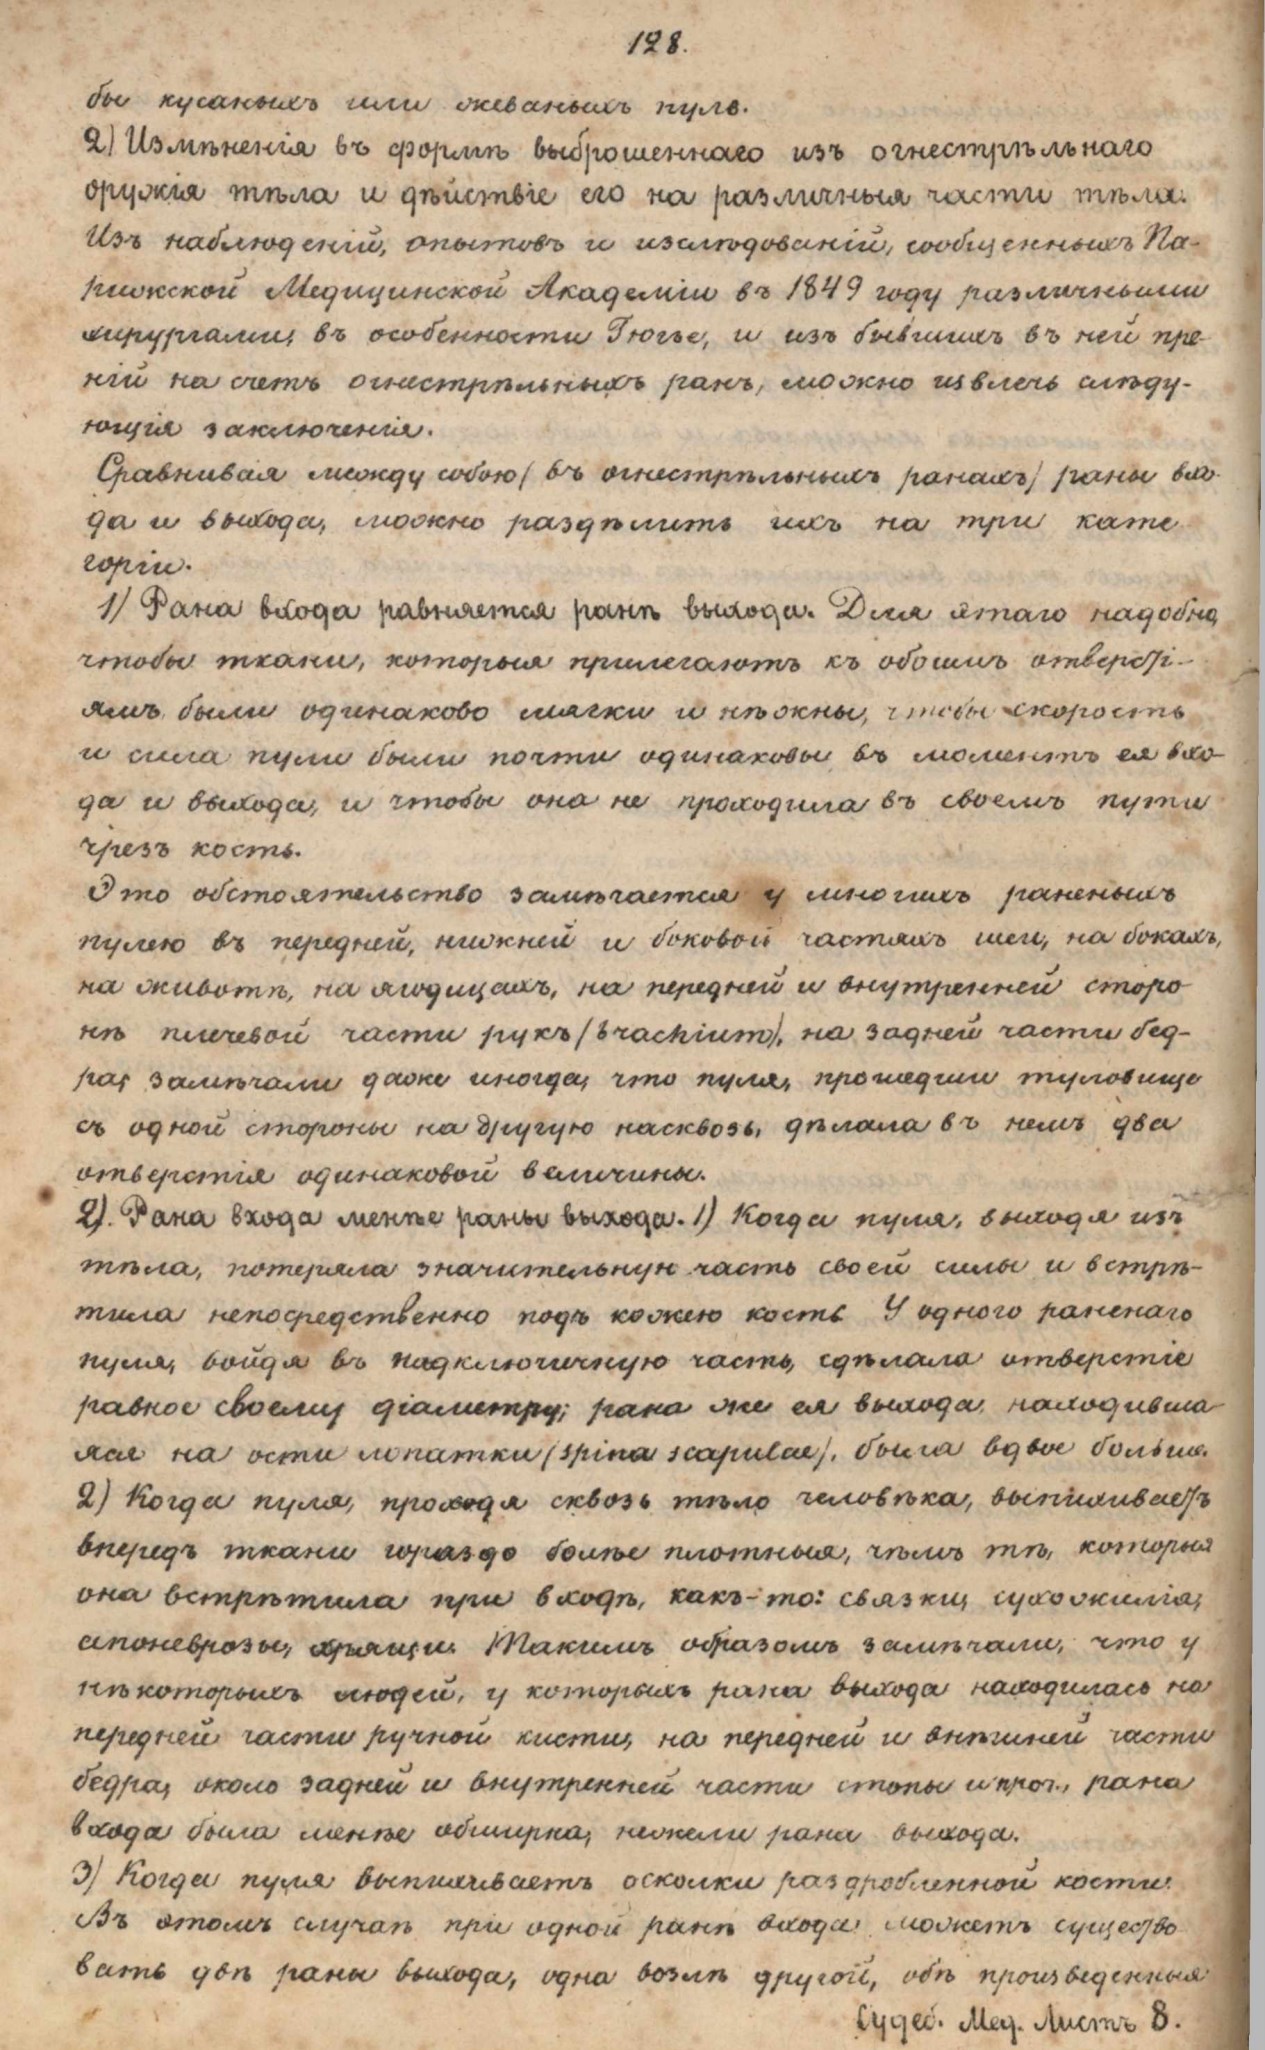 128.
бы кусаныхъ или жеваныхъ пуль.
2) Измѣненія въ формѣ выброшеннаго изъ огнестрѣльнаго
оружія тѣла и дѣйствіе его на различныя части тѣла.
Изъ наблюденій, опытовъ и изслѣдованій, сообщенныхъ Па-
рижской Медицинской Академіи въ 1849 году различными
хирургами, въ особенности Гюгье, и изъ бывшихъ въ ней пре-
ній на счетъ огнестрѣльныхъ ранъ, можно извлечь слѣду-
ющія заключенія.
Сравнивая между собою /въ огнестрѣльныхъ ранахъ/ раны вхо-
да и выхода, можно раздѣлить ихъ на три кате
горіи.
1/ Рана входа равняется ранѣ выхода. Для этаго надобно,
чтобы ткани, которыя прилегаютъ къ обоимъ отверсті-
ямъ были одинаково мягки и нѣжны, чтобы скорость
и сила пули были почти одинаковы въ моментъ ея вхо-
да и выхода, и чтобы она не проходила въ своемъ пути
чрезъ кость.
Это обстоятельство замѣчается у многихъ раненыхъ
пулею въ передней, нижней и боковой частяхъ шеи, на бокахъ,
на животѣ, на ягодицахъ, на передней и внутренней сторо
нѣ плечевой части рукъ /brachium/, на задней части бед-
ра; замѣчали даже иногда, что пуля, прошедши туловище
съ одной стороны на другую насквозь, дѣлала въ немъ два
отверстія одинаковой величины.
2). Рана входа менѣе раны выхода. 1) Когда пуля, выходя изъ
тѣла, потеряла значительную часть своей силы и встрѣ-
тила непосредственно подъ кожею кость. У одного раненаго
пуля, войдя въ надключичную часть, сдѣлала отверстіе
равное своему діаметру; рана же ея выхода, находивша-
яся на ости лопатки /spina scapulae/, была вдвое больше.
2) Когда пуля, проходя сквозь тѣло человѣка, выпихиваетъ
впередъ ткани гораздо болѣе плотныя, чѣмъ тѣ, которыя
она встрѣтила при входѣ, какъ-то: связки, сухожилія,
апоневрозы, хрящи. Такимъ образомъ замѣчали, что у
нѣкоторыхъ людей, у которыхъ рана выхода находилась на
передней части ручной кисти, на передней и внѣшней части
бедра, около задней и внутренней части стопы и проч., рана
входа была менѣе обширна, нежели рана выхода.
3) Когда пуля выпихиваетъ осколки раздробленной кости.
Въ этомъ случаѣ при одной ранѣ входа можетъ существо
вать двѣ раны выхода, одна возлѣ другой, обѣ произведенныя
Судеб. Мед. Листъ 8.